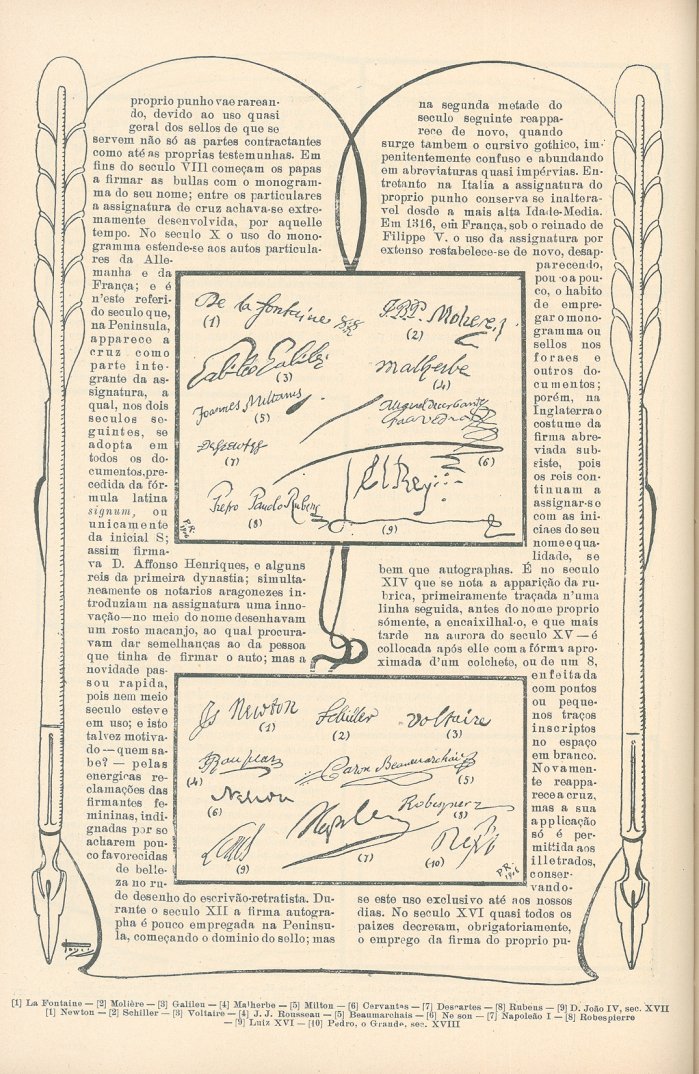 proprio punho vae rarean-
do, devido ao uso quasi
geral dos sellos de que se
servem não só as partes contractantes
como até as proprias testemunhas. Em
fins do seculo VIII começam os papas
a firmar as bullas com o monogram-
ma do seu nome; entre os particulares
a assignatura de cruz achava-se extre-
mamente desenvolvida, por aquelle
tempo. No seculo X o uso do mono-
gramma estende-se aos autos particula-
res da Alle-
manha e da
França; e é
n'este referi-
do seculo que,
na Peninsula,
apparece a
cruz como
parte inte-
grante da as-
signatura, a
qual, nos dois
seculos se-
guintes, se
adopta em
todos os do-
cumentos, pre-
cedida da fór-
mula latina
signum, ou
unicamente
da inicial S;
assim firma-
va D. Affonso Henriques, e alguns
reis da primeira dynastia; simulta-
neamente os notarios aragonezes in-
troduziam na assignatura uma inno-
vação—no meio do nome desenhavam
um rosto macanjo, ao qual procura-
vam dar semelhanças ao da pessoa
que tinha de firmar o auto; mas a
novidade pas-
sou rapida,
pois nem meio
seculo esteve
em uso; e isto
talvez motiva-
do—quem sa-
be? — pelas
energicas re-
clamações das
firmantes fe-
mininas, indi-
gnadas por se
acharem pouco
favorecidas
de belle-
za no ru-
de desenho do escrivão-retratista. Du-
rante o seculo XII a firma autogra-
pha é pouco empregada na Peninsu-
la, começando o dominio do sello; mas
na segunda metade do
seculo seguinte reappa-
rece de novo, quando
surge tambem o cursivo gothico, im-
penitentemente confuso e abundando
em abreviaturas quasi impérvias. En-
tretanto na Italia a assignatura do
proprio punho conserva se inaltera-
vel desde a mais alta Idade-Media.
Em 1316, em França, sob o reinado de
Filippe V. o uso da assignatura por
extenso restabelece-se de novo, desap-
parecendo,
pouco a pou-
co, o habito
de empre-
gar o mono-
gramma ou
sellos nos
foraes e
outros do-
cumentos;
porém, na
Inglaterra o
costume da
firma abre-
viada sub-
siste, pois
os reis con-
tinuam a
assignar-se
com as ini-
ciaes do seu
nome e qua-
lidade, se
bem que autographas. É no seculo
XIV que se nota a apparição da ru-
brica, primeiramente traçada n'uma
linha seguida, antes do nome proprio
sómente, a encaixilhal-o, e que mais
tarde na aurora do seculo XV — é
collocada após elle com a fórma apro-
ximada d'um colchete, ou de um 8,
enfeitada
com pontos
ou peque-
nos traços
inscriptos
no espaço
em branco.
Novamen-
te reappa-
rece a cruz,
mas a sua
applicação
só é per-
mittida aos
illetrados,
conser-
vando-
se este uso exclusivo até aos nossos
dias. No seculo XVI quasi todos os
paizes decretam, obrigatoriamente,
o emprego da firma do proprio pu-
De la fontaine
(1)
Moliere
(2)
Galileo Galilei
(3)
malherbe
(4)
Joannes Miltonus
(5)
Miguel de Cerbantes
Saavedra
(6)
Descartes
(7)
Pietro Pauolo Rubens
(8)
El Rey
(9)
P.R.
1906
Is Newton
(1)
Schiller
(2)
Voltaire
(3)
(4)
Caron Beaumarchais
(5)
Nelson
(6)
(7)
Robespierre
(8)
(9)
(10)
P.R.
1906
[1] La Fontaine — [2] Molière — [3] Galileu — [4] Malherbe — [5] Milton — [6] Cervantes — [7] Descartes — [8] Rubens — [9] D. João IV, sec. XVII
[1] Newton — [2] Schiller — [3] Voltaire — [4] J. J. Rousseau — [5] Beaumarchais — [6] Nelson — [7] Napoleão I — [8] Robespierre
— [9] Luiz XVI — [10] Pedro, o Grande, sec. XVIII